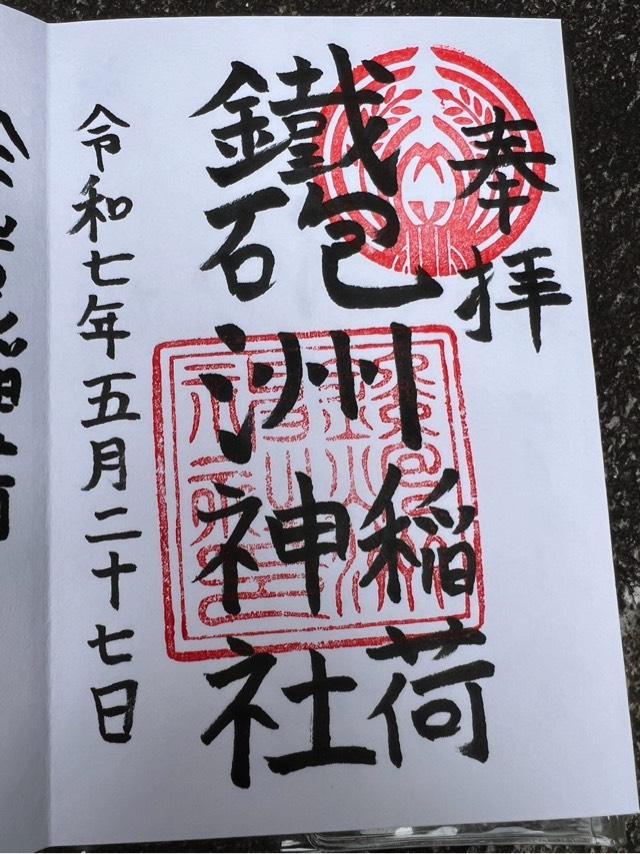 奉拝
鐵砲洲稲荷
神社
令和七年五月二十七日